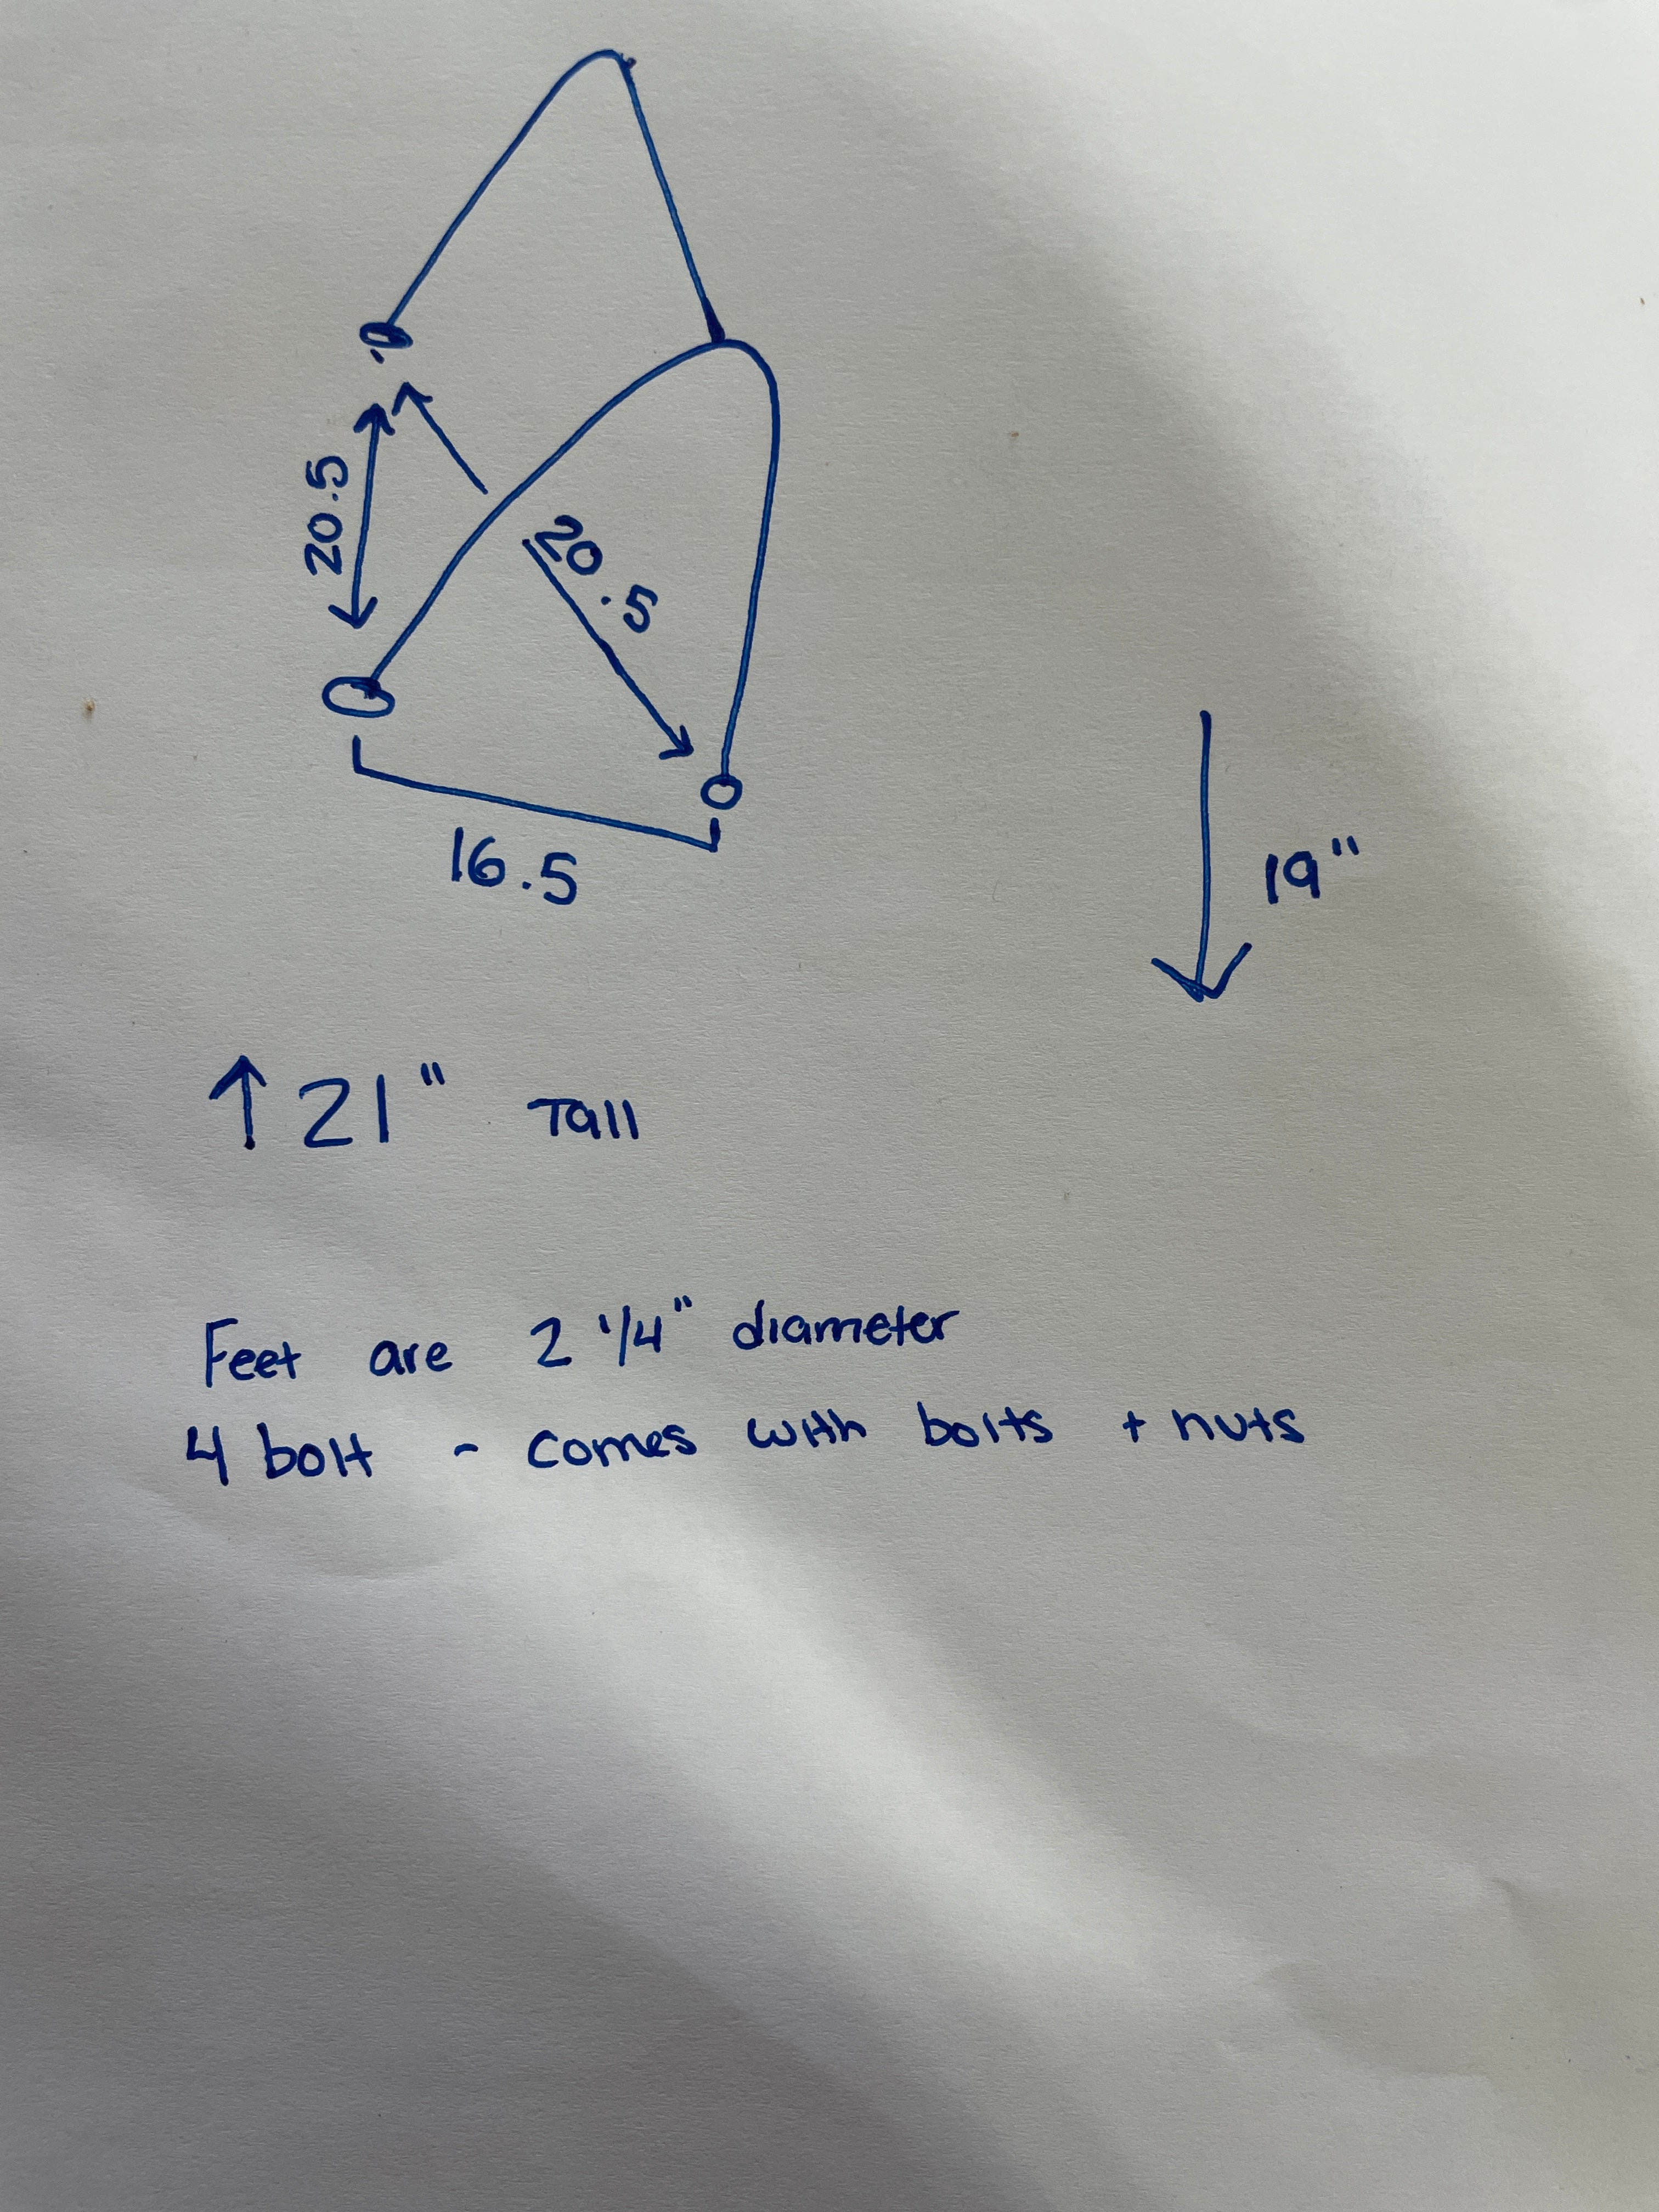 20.5
20.5
16.5
19"
21" Tall
Feet are 2 1/4" diameter
4 bolt - comes with bolts + nuts